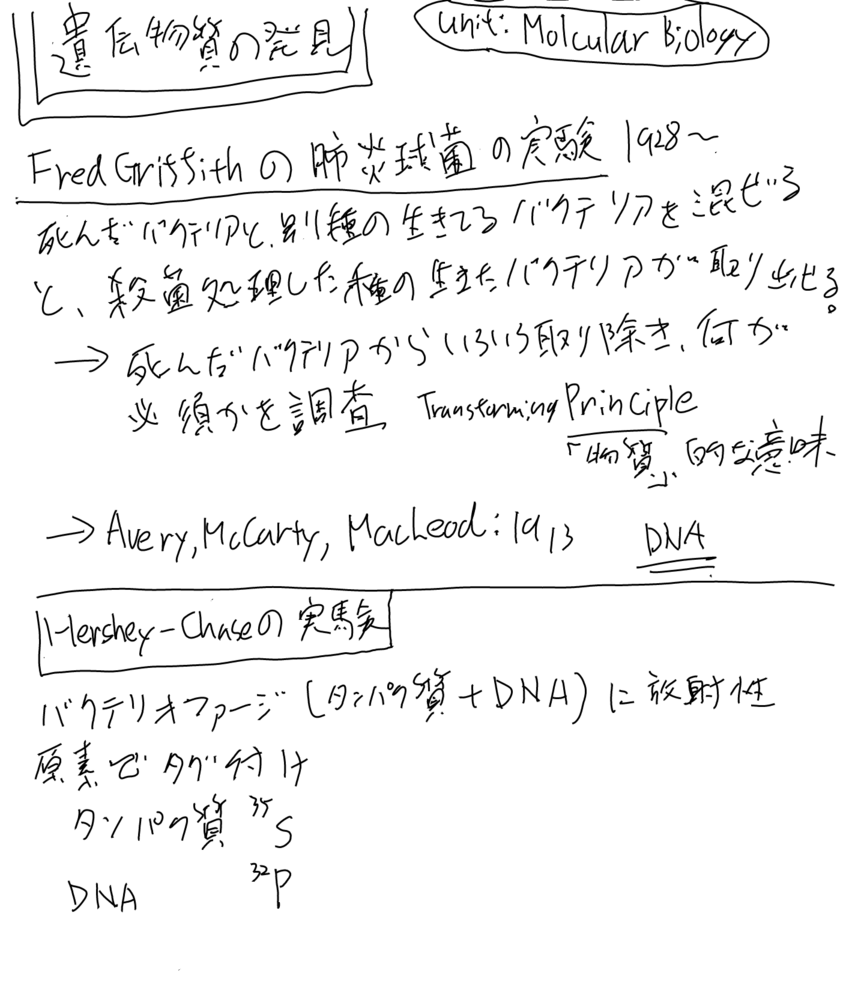 遺伝物質の発見
Unit: Molcular Biology
Fred Griffithの肺炎球菌の実験 1928〜
死んだバクテリアと、別種の生きてるバクテリアを混ぜる
と、殺菌処理した種の生きたバクテリアが取り出せる。
→ 死んだバクテリアからいろいろ取り除き、何が
必須かを調査 Transforming Principle
「物質」的な意味
→ Avery, McCarty, MacLeod: 1913 DNA
Hershey-Chaseの実験
バクテリオファージ(タンパク質+DNA)に放射性
原素でタグ付け
タンパク質 ³⁵S
DNA ³²P